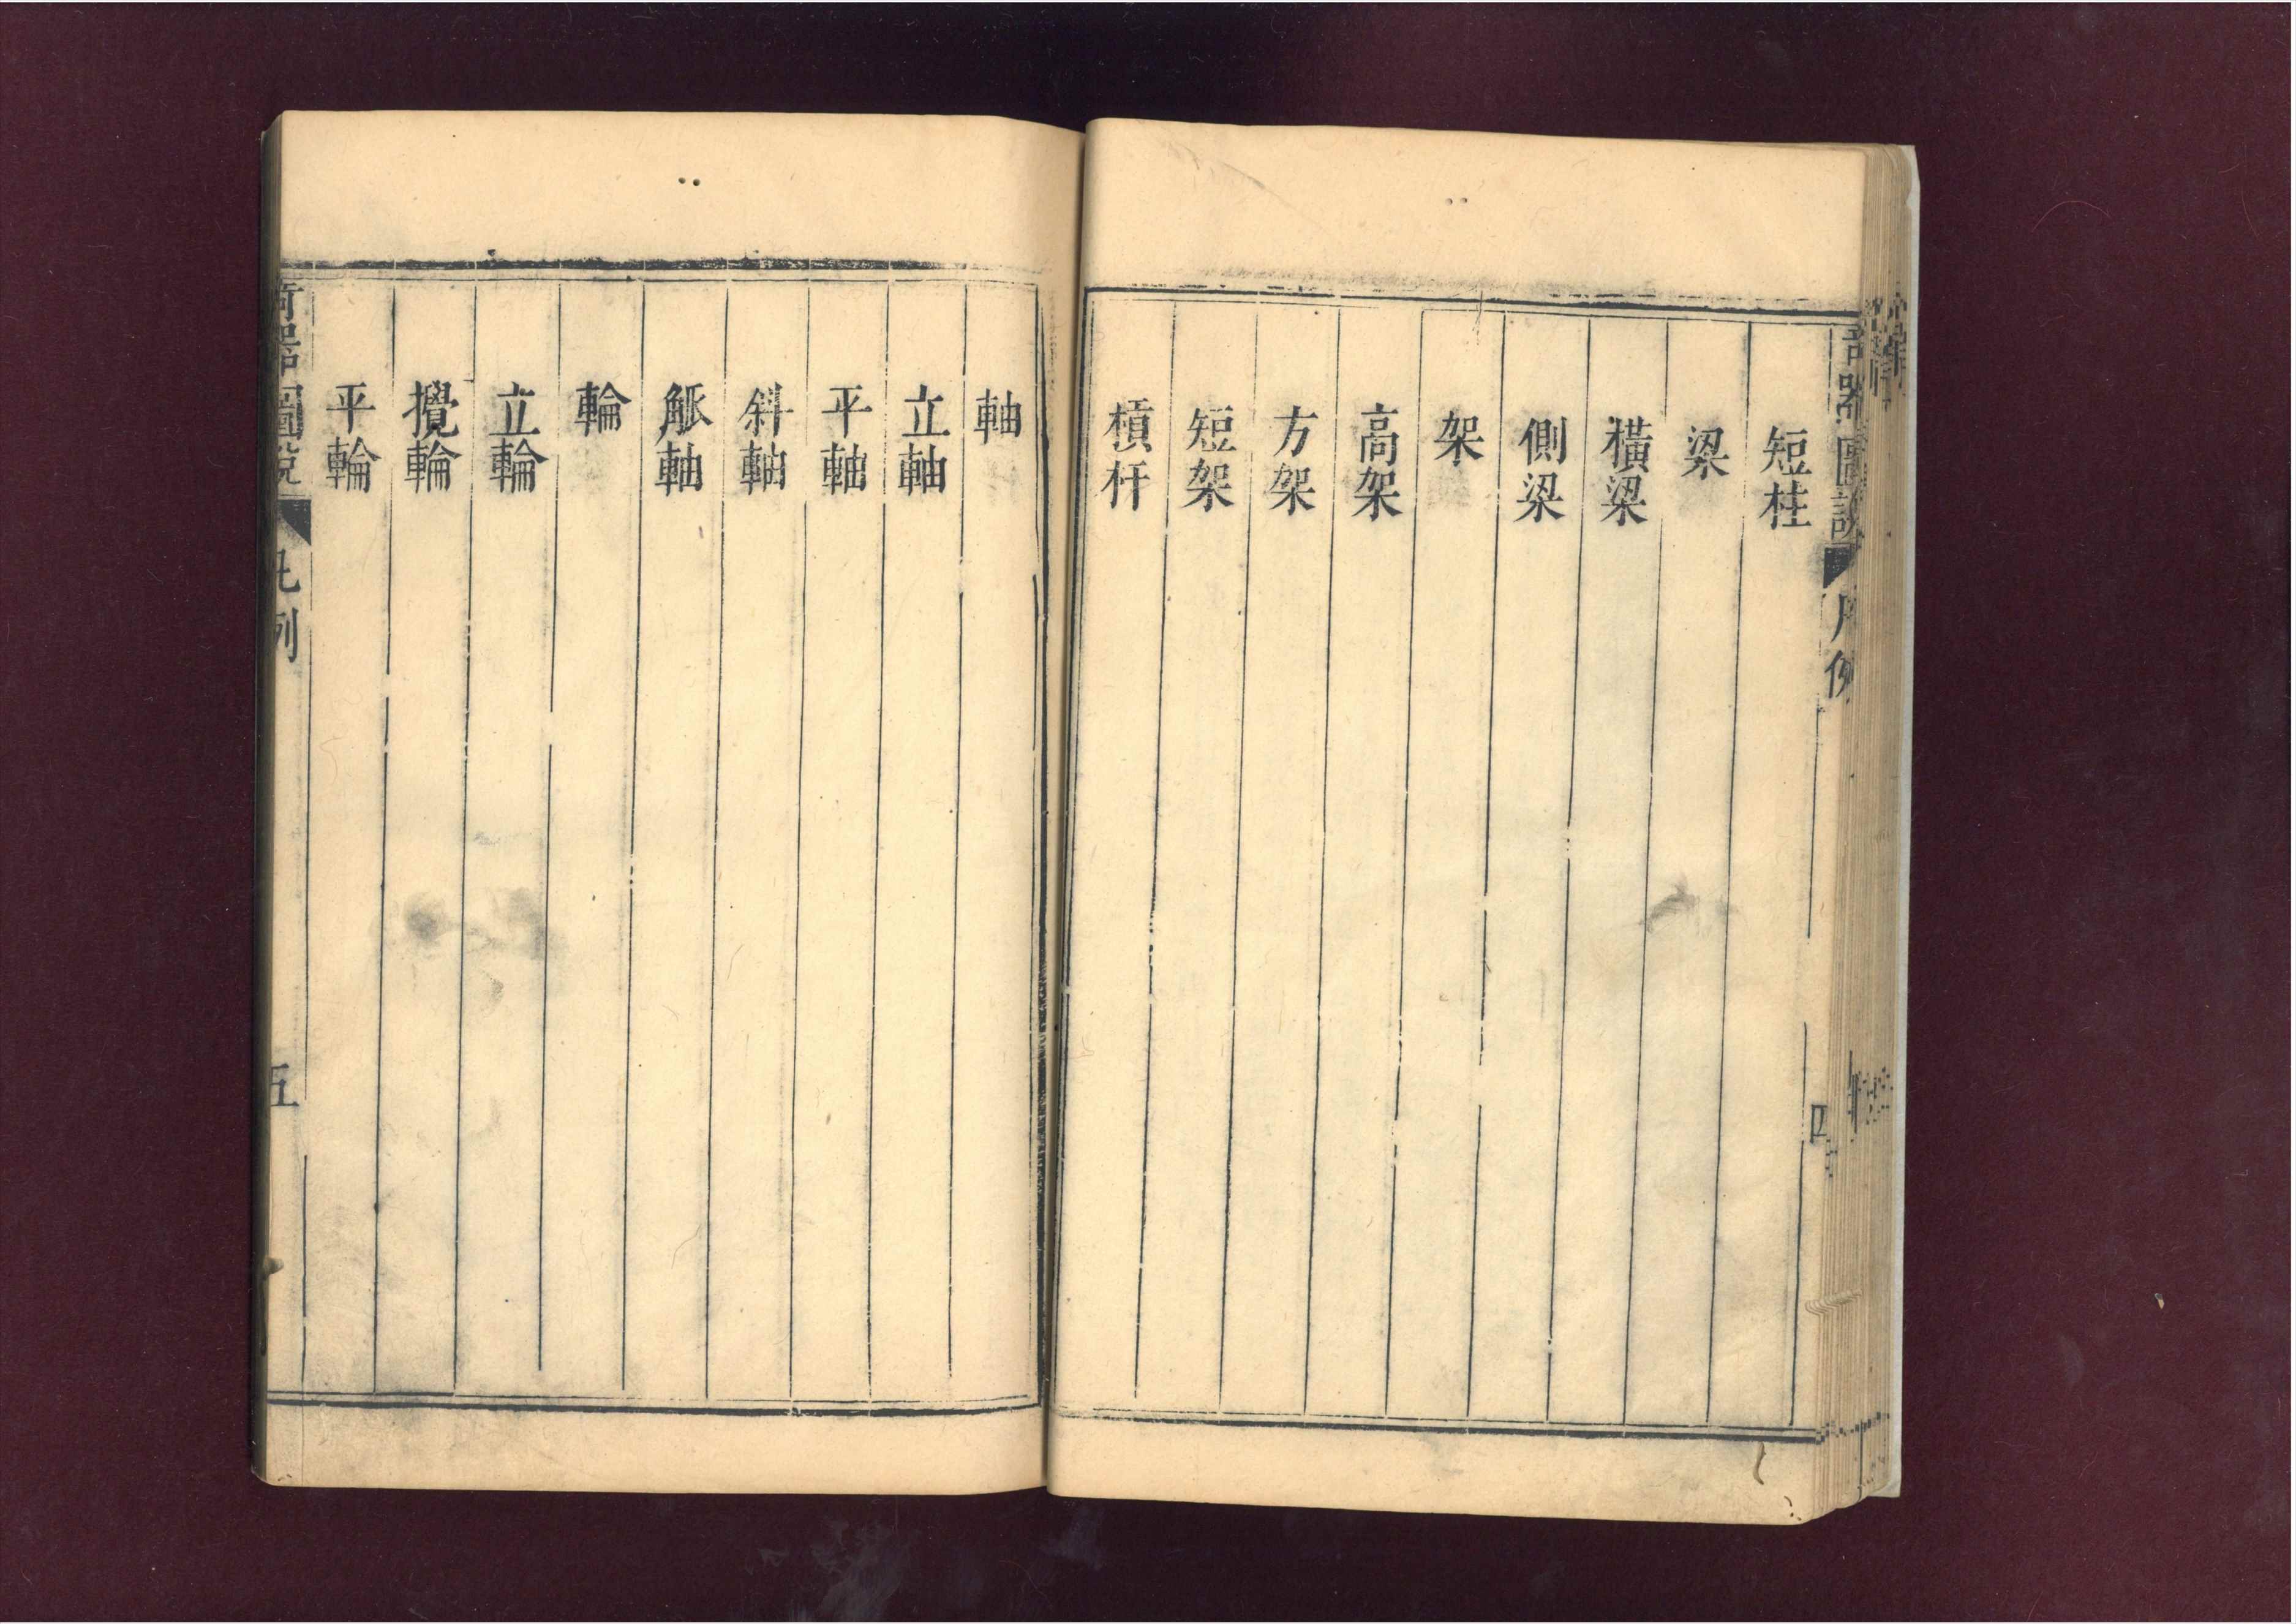 奇器圖說
凡例
四
短桂
梁
橫梁
側梁
架
高架
方架
短架
槓杆
軸
立軸
平軸
斜軸
觚軸
輪
立輪
攪輪
平輪
奇器圖說
凡例
五